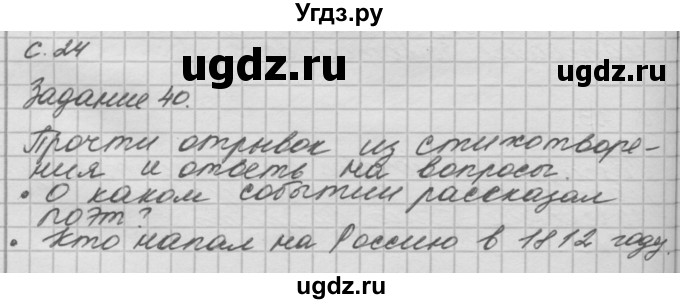 Угдз.ру
с. 24
Задание 40.
Прочти отрывок из стихотворе-
ния и ответь на вопросы.
• О каком событии рассказал
поэт?
• Кто напал на Россию в 1812 году.
ugdz.ru
ugdz.ru
ugdz.ru
ugdz.ru
ugdz.ru